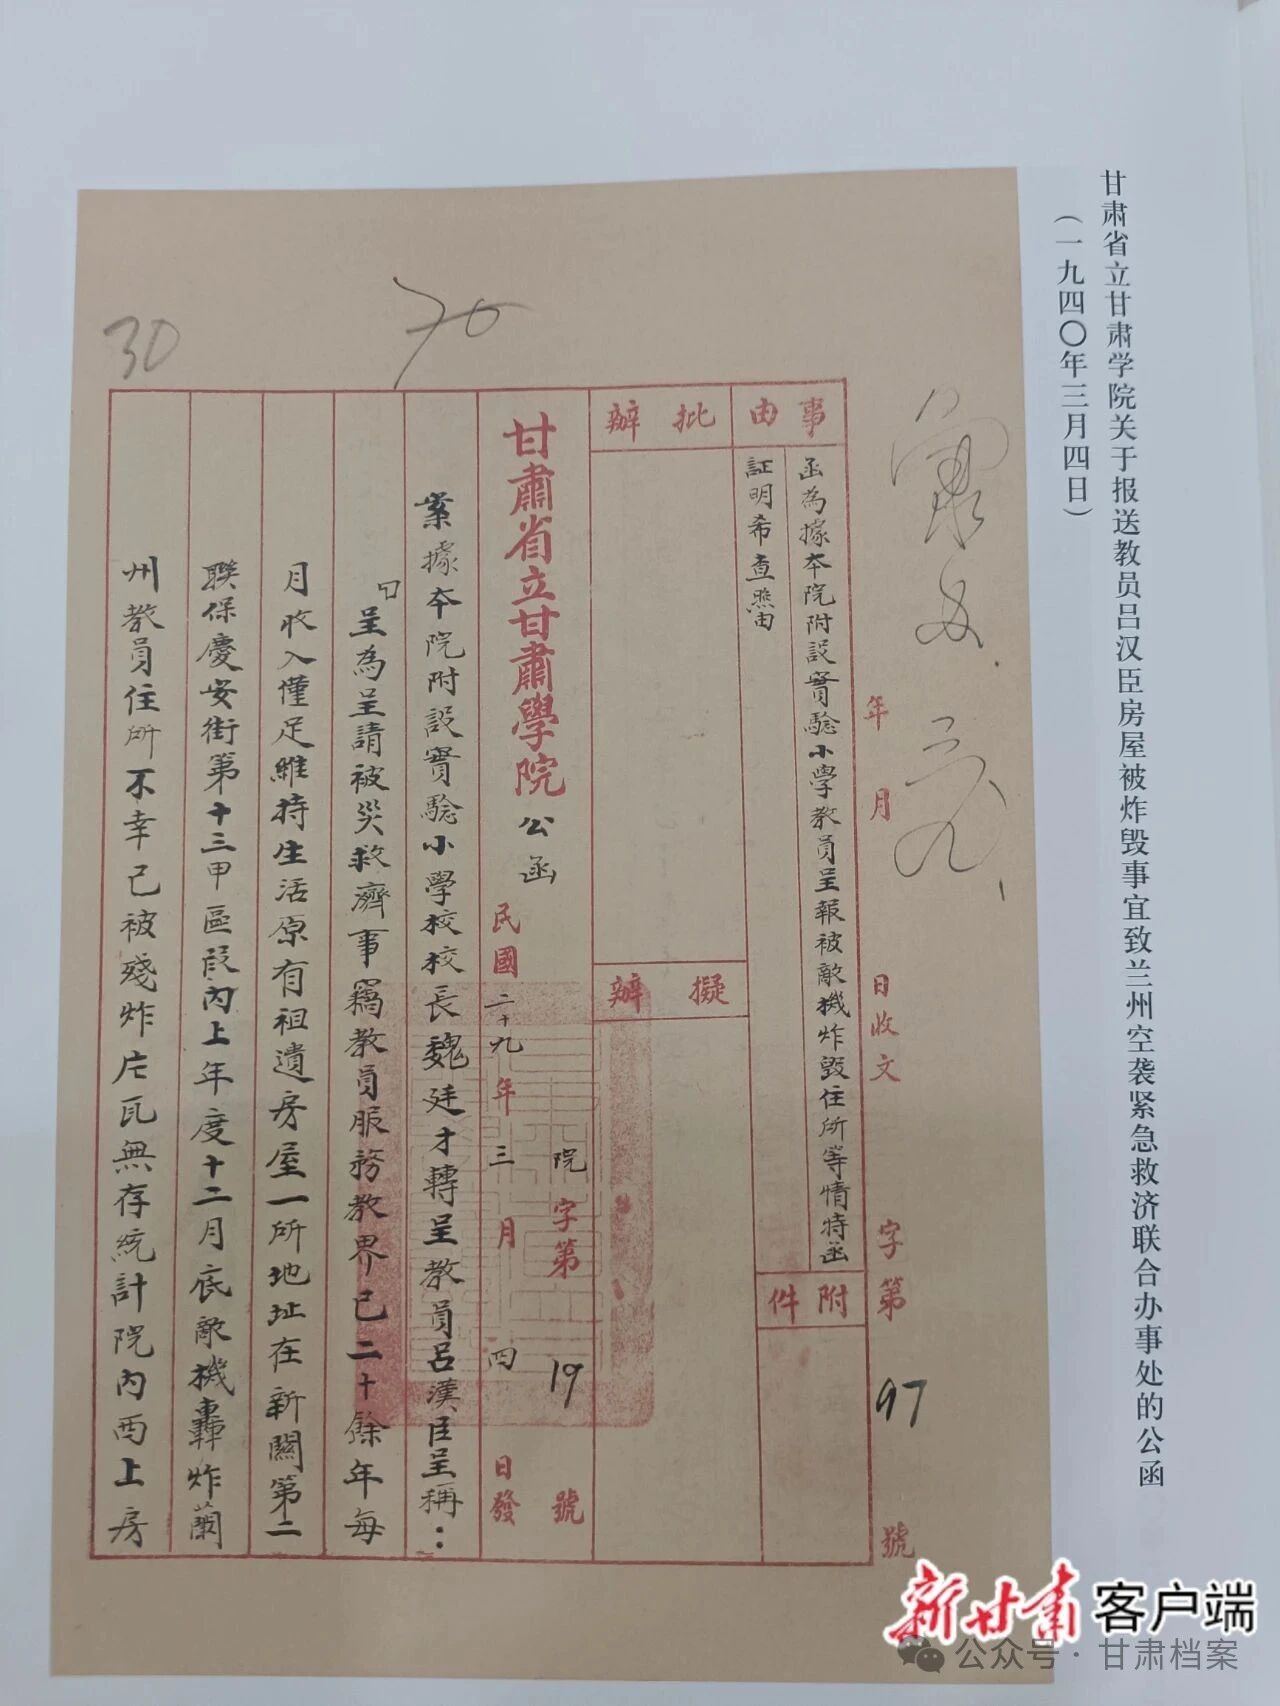 甘肃省立甘肃学院关于报送教员吕汉臣房屋被炸毁事宜致兰州空袭紧急救济联合办事处的公函
（一九四〇年三月四日）
年 月 日收文 字第 97 號
事由
函為據本院附設實驗小學教員呈報被敵機炸毀住所等情特函
証明希查照由
附件
批辦
擬辦
甘肅省立甘肅學院公函
院字第 19 號
民國二十九年三月四日發
案據本院附設實驗小學校校長魏廷才轉呈教員呂漢臣呈稱：
「呈為呈請被災救濟事竊教員服務教界已二十餘年每
月收入僅足維持生活原有祖遺房屋一所地址在新關第二
聯保慶安街第十三甲區段內上年度十二月底敵機轟炸蘭
州教員住所不幸已被殘炸片瓦無存統計院內西上房
70
30
新甘肃 客户端
公众号·甘肃档案